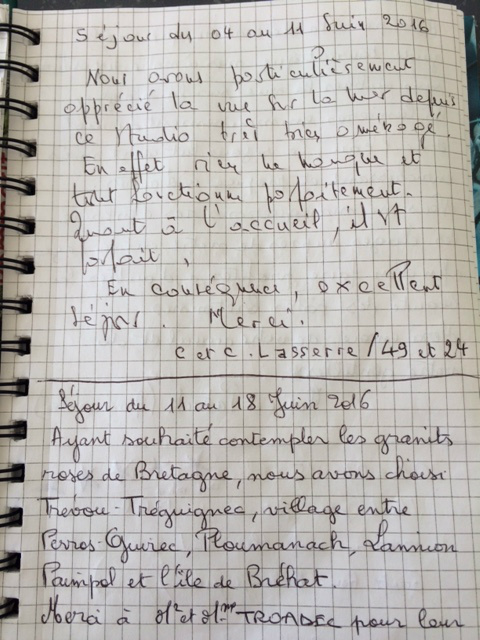 Séjour du 04 au 11 Juin 2016
Nous avons particulièrement
apprécié la vue sur la mer depuis
ce studio très bien aménagé.
En effet rien ne manque et
tout fonctionne parfaitement.
Quant à l'accueil, il est
parfait.
En conséquence, excellent
séjour. Merci.
C et C. Lasserre / 49 et 24
Séjour du 11 au 18 Juin 2016
Ayant souhaité contempler les granits
roses de Bretagne, nous avons choisi
Trévou-Tréguignec, village entre
Perros-Guirec, Ploumanach, Lannion
Paimpol et l'île de Bréhat.
Merci à Mr et Mme TROADEC pour leur